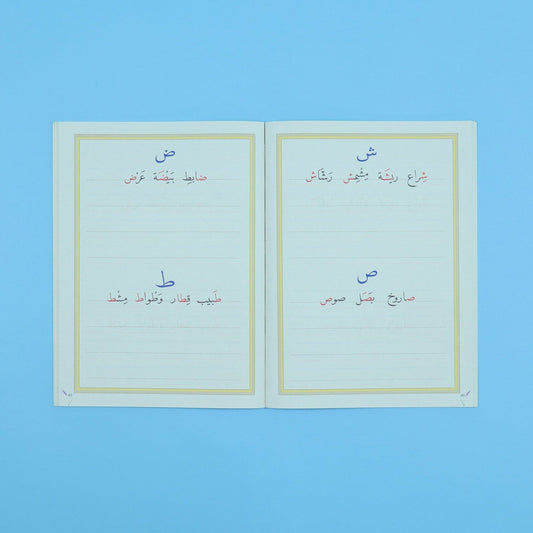 ش
شِراع ريشَة مِشْمِش رَشّاش
ص
صاروخ بَصَل صوص
ض
ضابِط بَيْضَة عَرْض
ط
طَبيب قِطار وَطْواط مِشْط